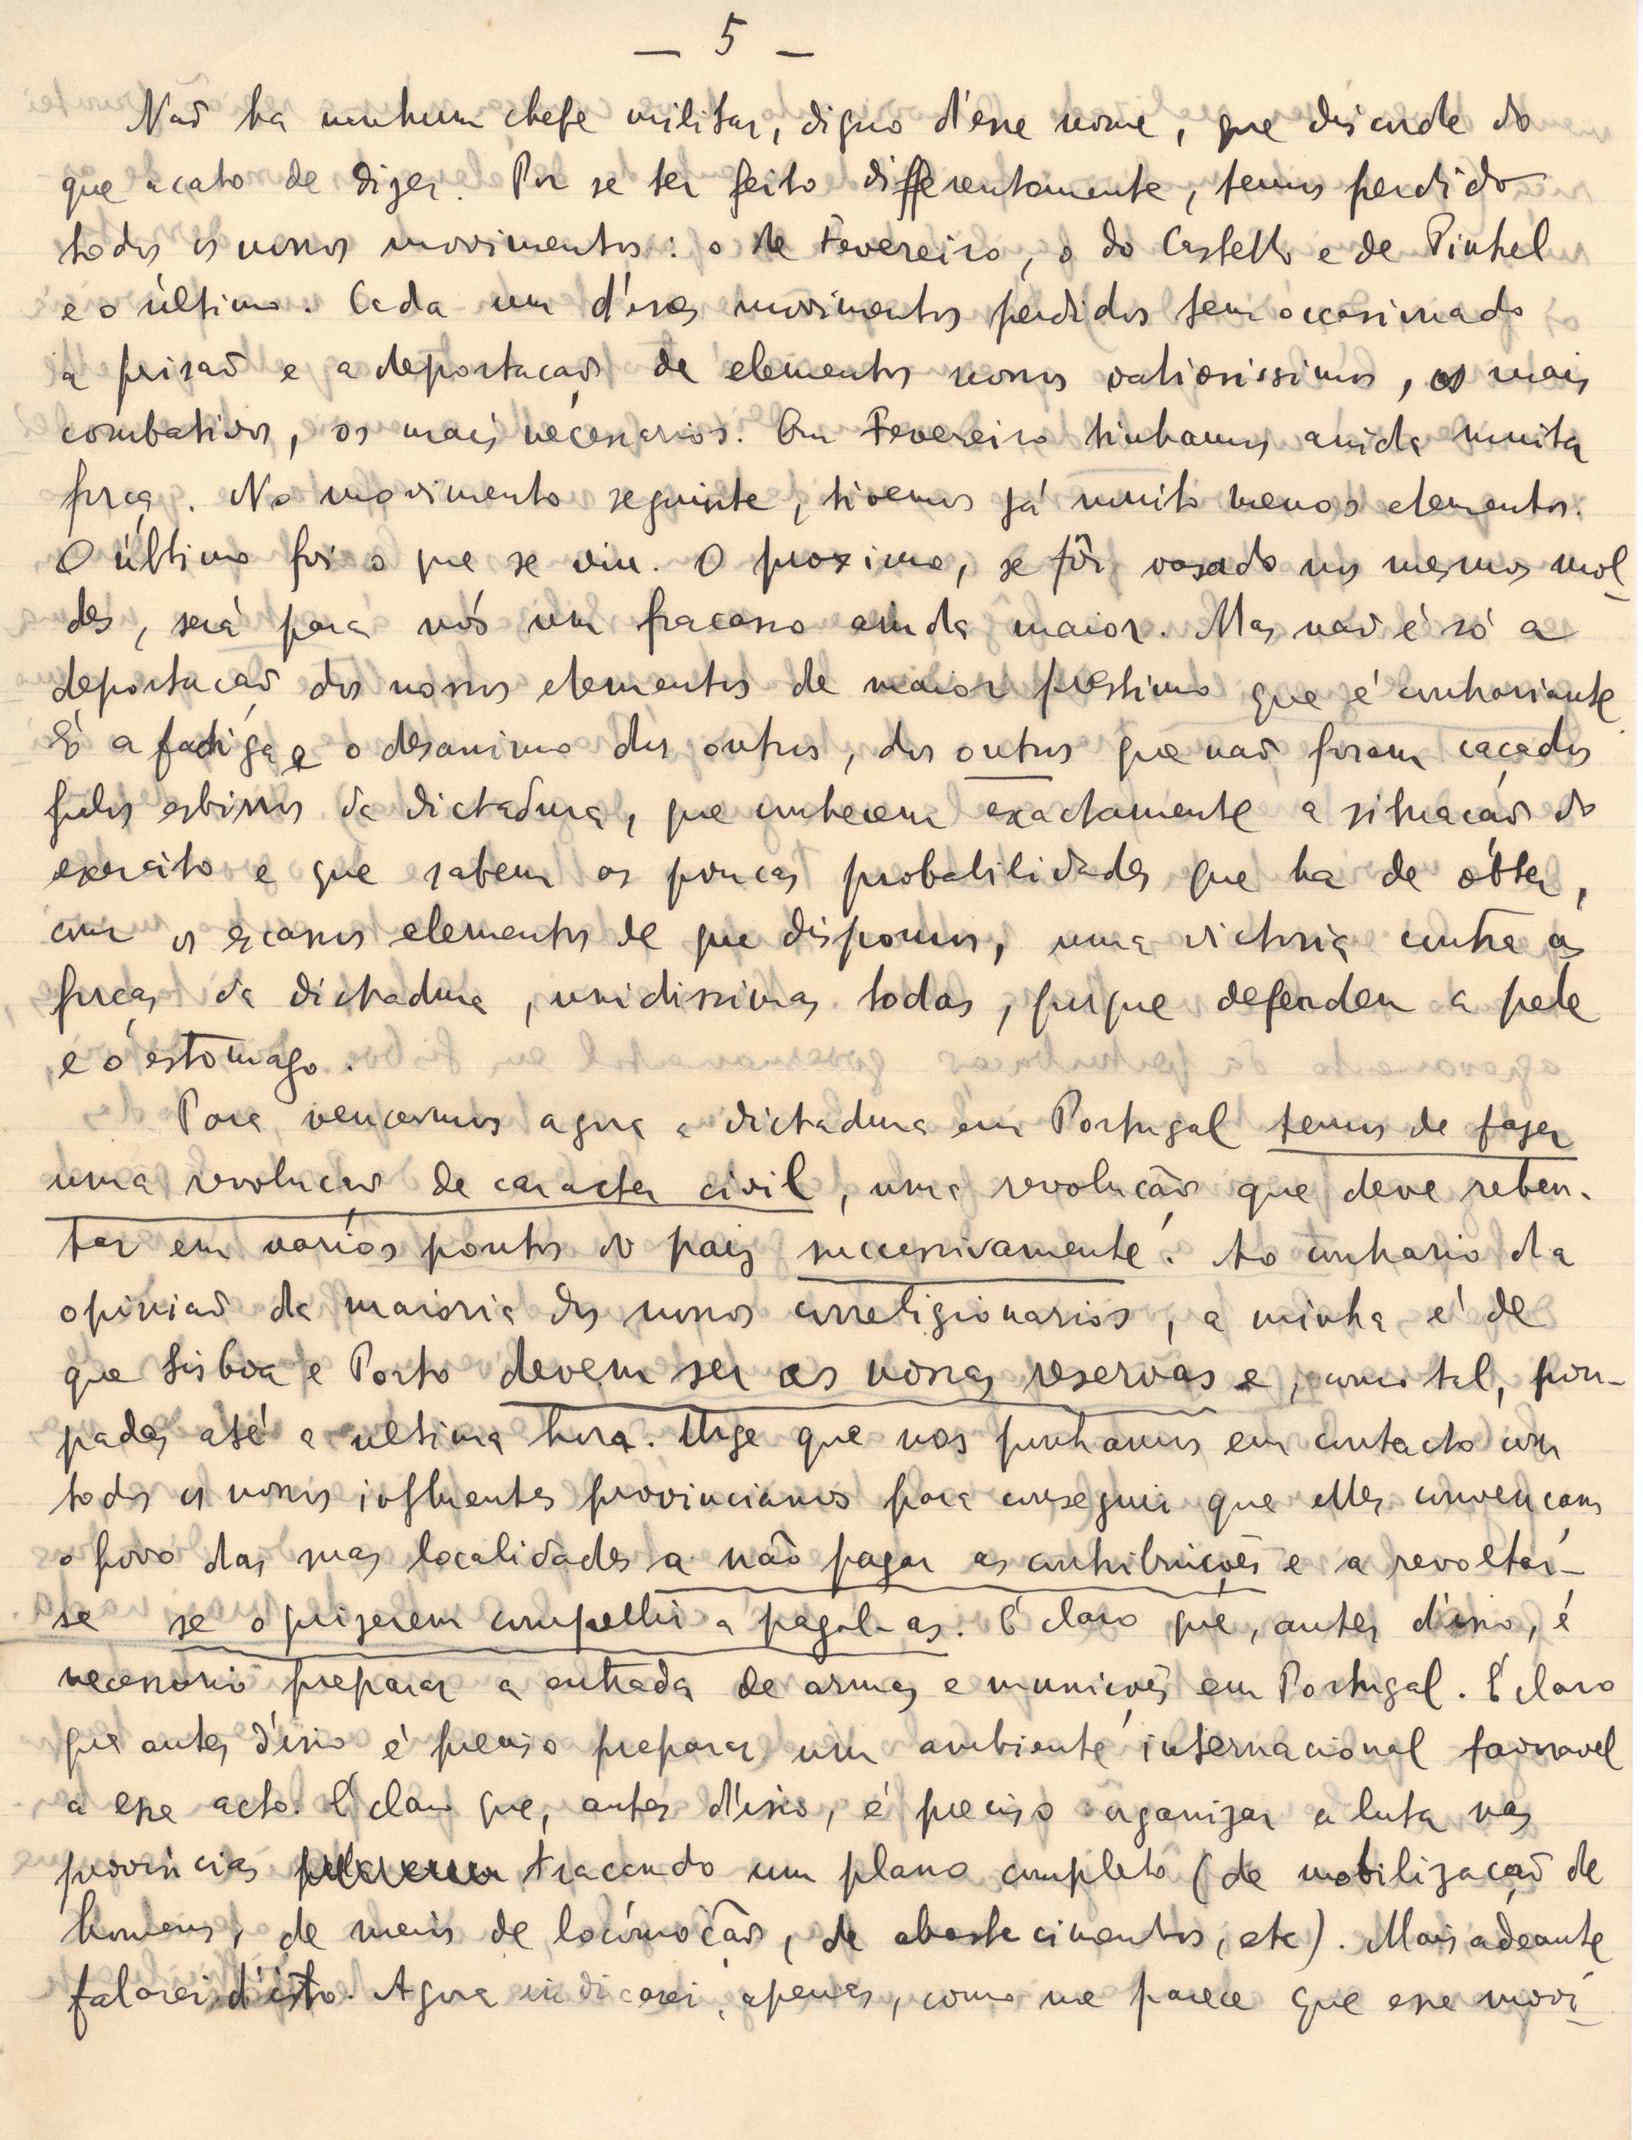 — 5 —
Não ha nenhum chefe militar, digno d'esse nome, que discorde do
que acabo de dizer. Por se ter feito differentemente, temos perdido
todos os nossos movimentos: o de Fevereiro, o do Castello e de Pinhel
e o último. Cada um d'esses movimentos perdidos tem occasionado
a prisão e a deportação de elementos nossos valiosissimos, os mais
combativos, os mais necessarios. Em Fevereiro tinhamos ainda muita
força. No movimento seguinte, tivemos já muito menos elementos.
O último foi o que se viu. O proximo, se fôr vasado nos mesmos mol-
des, será para nós um fracasso ainda maior. Mas não é só a
deportação dos nossos elementos de maior prestimo que é contrariante.
É a fadiga e o desanimo dos outros, dos outros que não foram caçados
pelos esbirros da dictadura, que conhecem exactamente a situação do
exercito e que sabem as poucas probabilidades que ha de obter,
com os escassos elementos de que dispomos, uma victoria contra as
forças da dictadura, unidissimas todas, porque defendem a pele
e o estomago.
Para vencermos agora a dictadura em Portugal temos de fazer
uma revolução de caracter civil, uma revolução que deve reben-
tar em varios pontos do paiz successivamente. Ao contrario da
opinião da maioria dos nossos correligionarios, a minha é de
que Lisboa e Porto devem ser as nossas reservas e, como tal, pou-
padas até a ultima hora. Urge que nos ponhamos em contacto com
todos os nossos influentes provincianos para conseguir que elles convençam
o povo das suas localidades a não pagar as contribuições e a revoltar-
se se o quizerem compellir a pagal-as. É claro que, antes d'isso, é
necessario preparar a entrada de armas e munições em Portugal. É claro
que antes d'isso é preciso preparar um ambiente internacional favoravel
a esse acto. É claro que, antes d'isso, é preciso organizar a luta nas
provincias traçando um plano completo (de mobilização de
homens, de meios de locomoção, de abastecimentos, etc). Mais adeante
falarei d'isto. Agora indicarei, apenas, como me parece que esse movi-